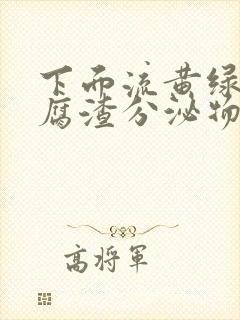 下面流黄绿
腐渣分泌物
高将军